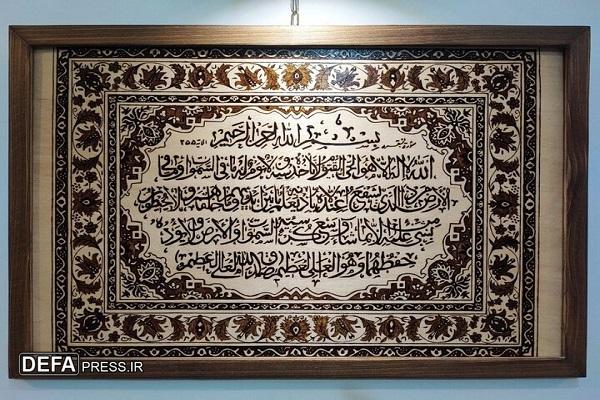 سورة بقره بسم الله الرحمن الرحيم الآية ٢٥٥
الله لا إله إلا هو الحي القيوم لا تأخذه سنة ولا نوم له ما في السموات وما في
الأرض من ذا الذي يشفع عنده إلا بإذنه يعلم ما بين أيديهم وما خلفهم ولا يحيطون
بشيء من علمه إلا بما شاء وسع كرسيه السموات والأرض ولا يؤده
حفظهما وهو العلي العظيم صدق الله العلي العظيم
DEFA PRESS.IR